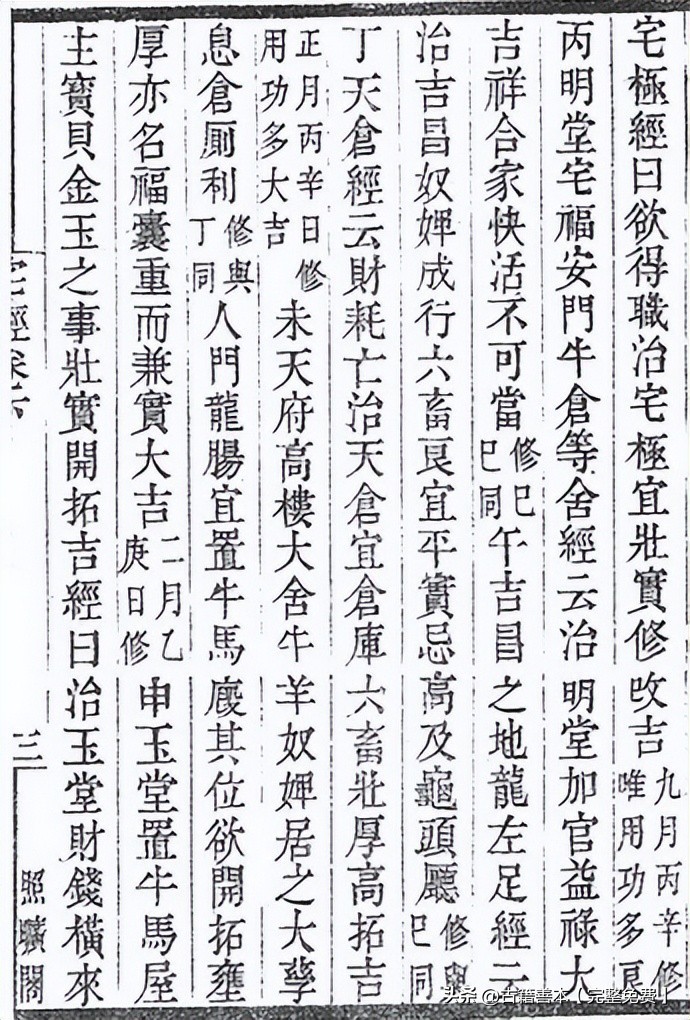 宅極經曰欲得職治宅極宜壯實修攺吉九月丙辛修唯用功多良
丙明堂宅福安門牛倉等舍經云治明堂加官益祿大
吉祥合家快活不可當修巳巳同午吉昌之地龍左足經云
治吉昌奴婢成行六畜良宜平實忌高及龜頭廳修與巳同
丁天倉經云財耗亡治天倉宜倉庫六畜壯厚高拓吉
正月丙辛日修用功多大吉未天府高樓大舍牛羊奴婢居之大孳
息倉厠利修與丁同人門龍腸宜置牛馬廄其位欲開拓壅
厚亦名福囊重而兼實大吉二月乙庚日修申玉堂置牛馬屋
主寶貝金玉之事壯實開拓吉經曰治玉堂財錢橫來
三
照曠閣
头条 @古籍善本【完整免费】